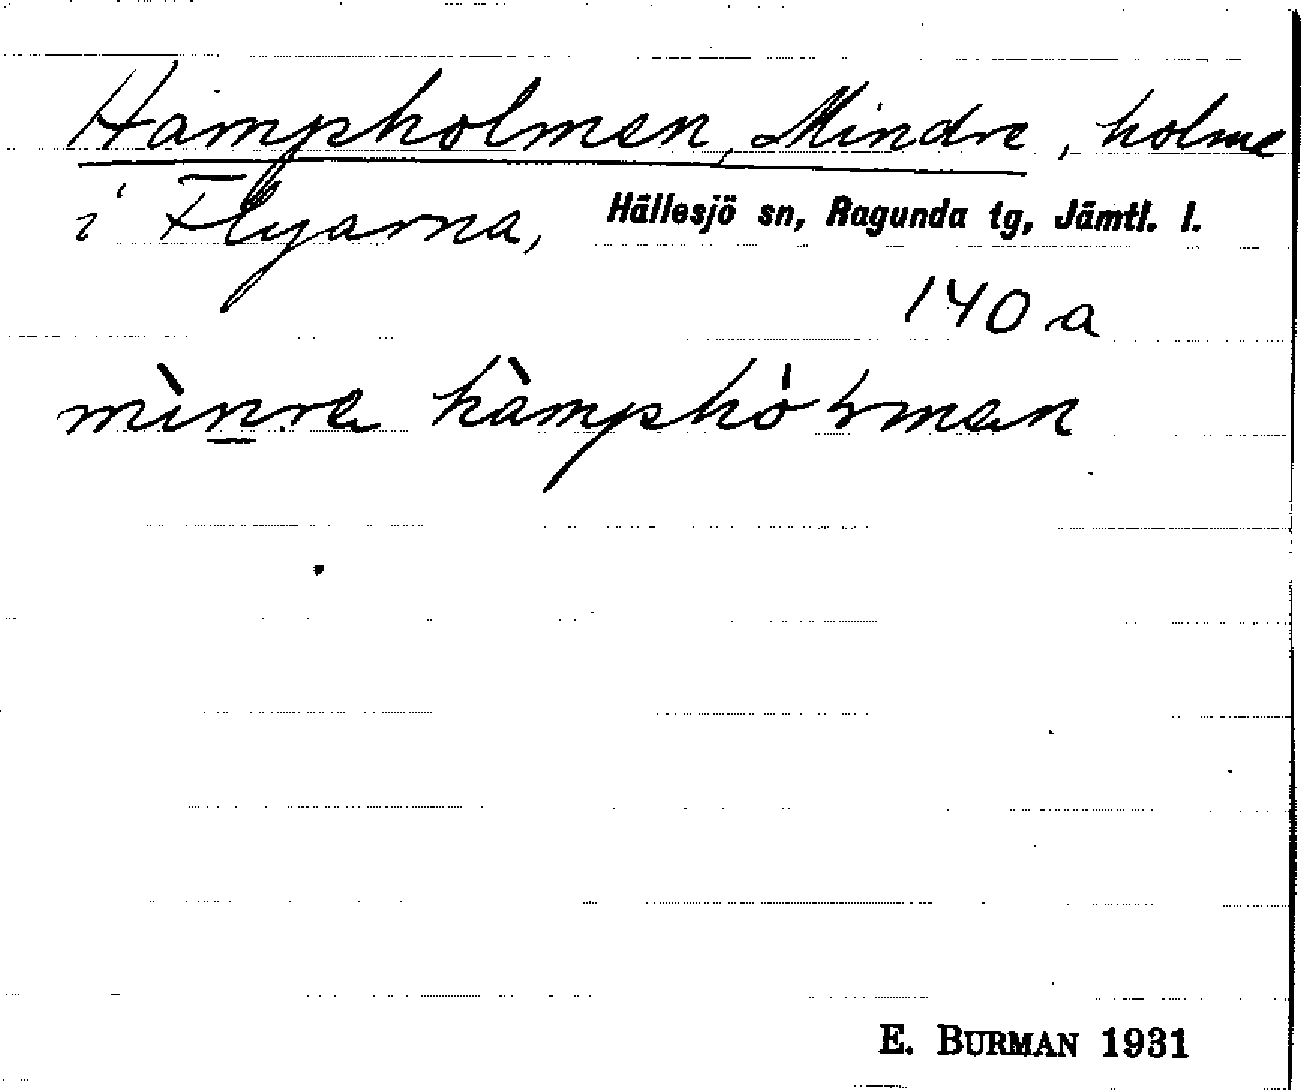 Hampholmen, Mindre, holme
i Flyarna, Hällesjö sn, Ragunda tg, Jämtl. l.
140 a
mìnre hàmphòłmen
E. BURMAN 1931